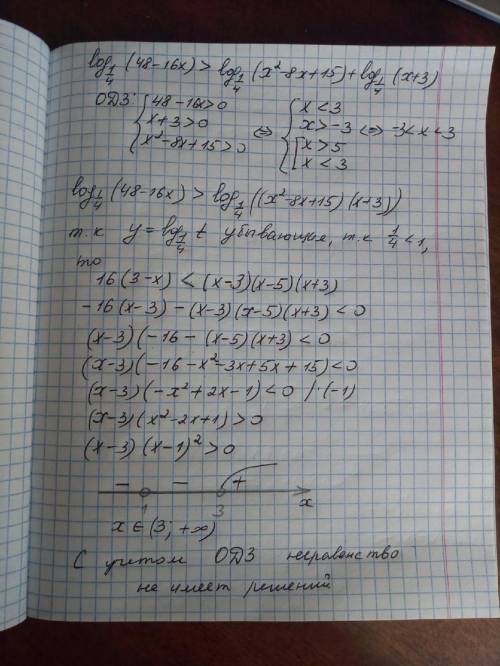 log_{1/4} (48-16x) > log_{1/4} (x²-8x+15) + log_{1/4} (x+3)
ОДЗ: { 48-16x>0 ; x+3>0 ; x²-8x+15>0 ⇔ { x<3 ; x>-3 ; [ x>5 ; x<3 ⇔ -3<x<3
log_{1/4} (48-16x) > log_{1/4} ((x²-8x+15)(x+3))
т.к y = log_{1/4} t убывающая, т.к 1/4 < 1,
то
16(3-x) < (x-3)(x-5)(x+3)
-16(x-3) - (x-3)(x-5)(x+3) < 0
(x-3)(-16 - (x-5)(x+3) < 0
(x-3)(-16-x²-3x+5x+15) < 0
(x-3)(-x²+2x-1) < 0 /·(-1)
(x-3)(x²-2x+1) > 0
(x-3)(x-1)² > 0
− − +
1 3 x
x ∈ (3; +∞)
С учетом ОДЗ неравенство
не имеет решений